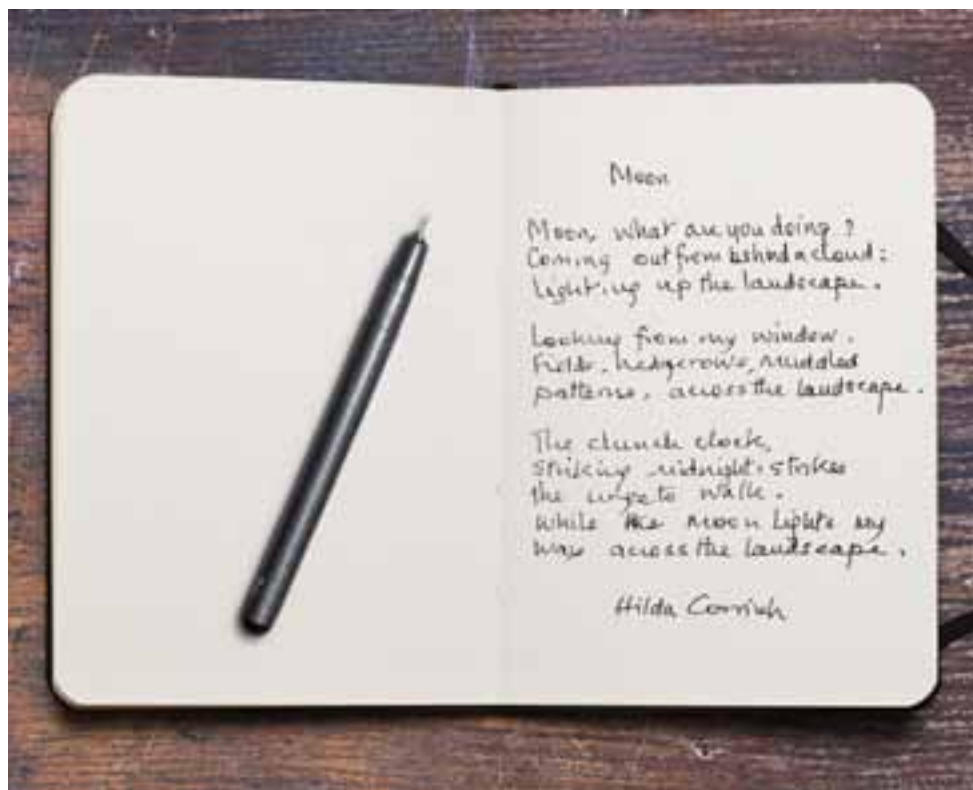 Moon
Moon, what are you doing?
Coming out from behind a cloud:
Lighting up the landscape.
Looking from my window.
Fields, hedgerows, muddled
patterns, across the landscape.
The church clock,
striking midnight. strikes
the urge to walk.
While the Moon lights my
way across the landscape.
Hilda